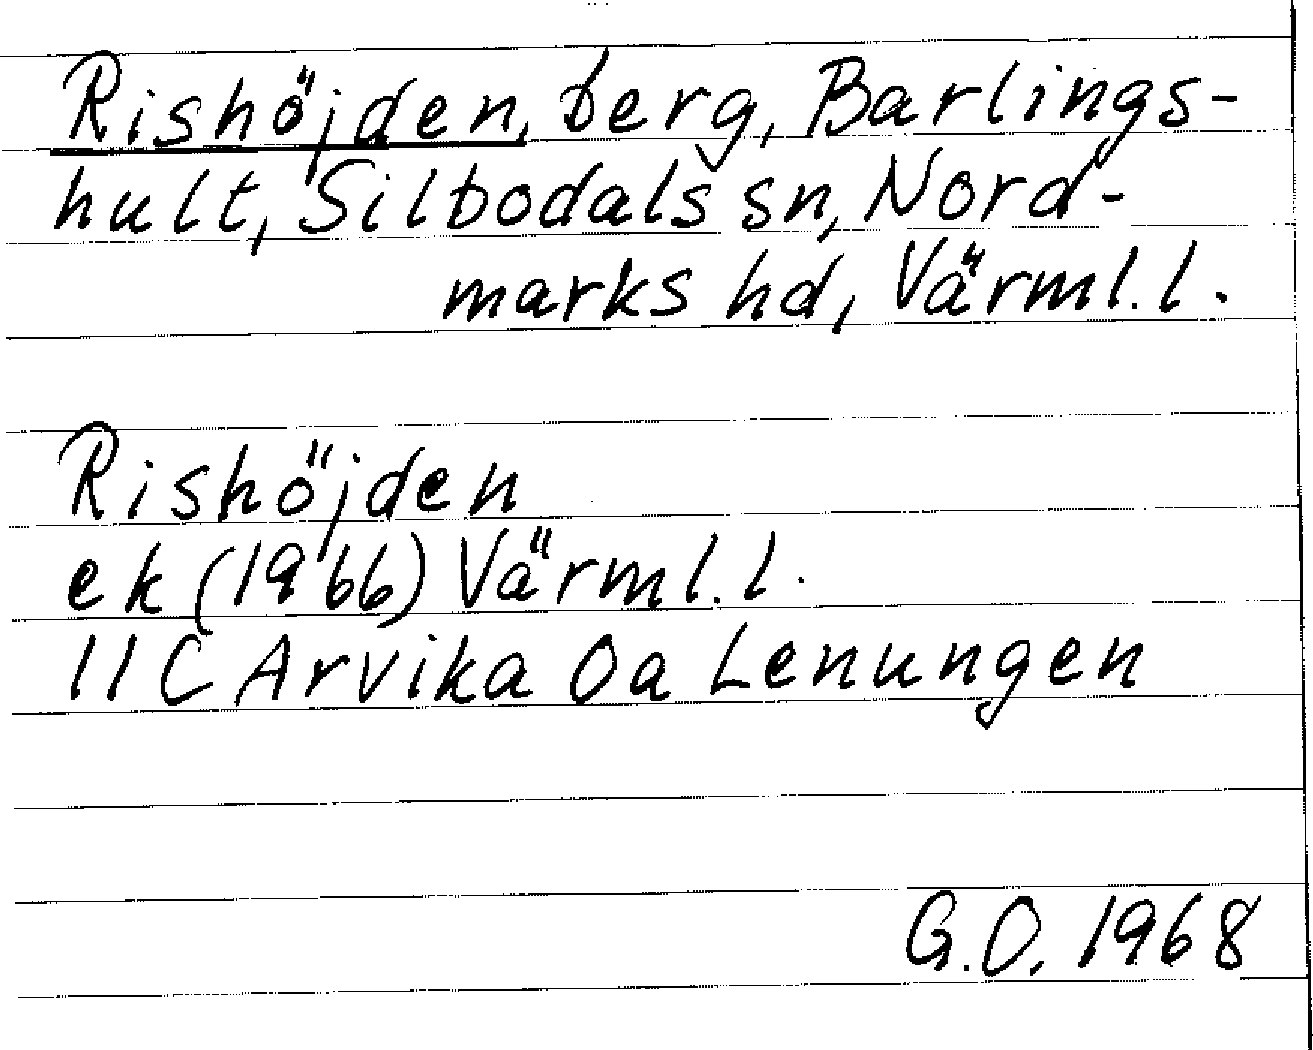 Rishöjden, berg, Barlings-
hult, Silbodals sn, Nord-
marks hd, Värml. l.
Rishöjden
ek (1966) Värml. l.
11C Arvika 0a Lenungen
G.O. 1968